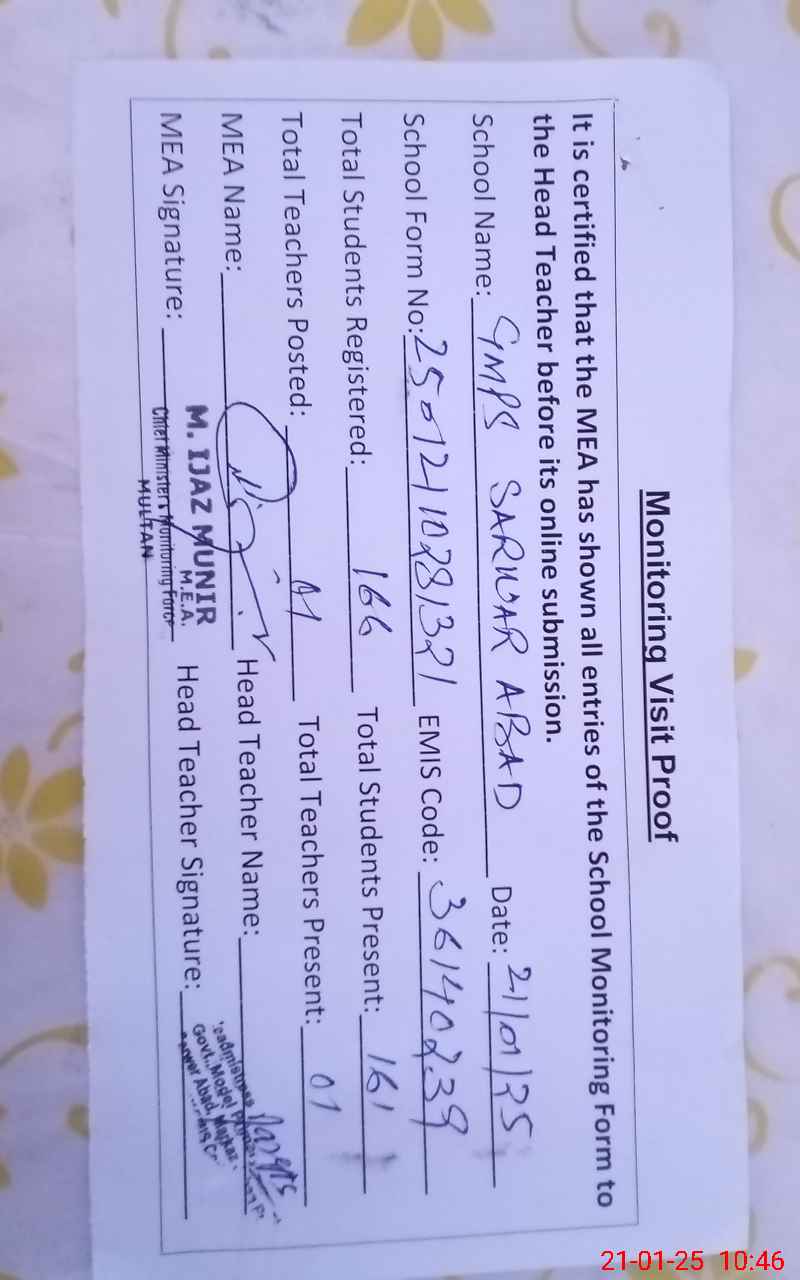 Monitoring Visit Proof
It is certified that the MEA has shown all entries of the School Monitoring Form to
the Head Teacher before its online submission.
School Name: GMPS SARWAR ABAD Date: 21/01/25
School Form No: 25012110281321 EMIS Code: 36140239
Total Students Registered: 166 Total Students Present: 161
Total Teachers Posted: 01 Total Teachers Present: 01
MEA Name: Head Teacher Name:
M. IJAZ MUNIR
M.E.A.
MEA Signature: Head Teacher Signature:
Chief Minister's Monitoring Force
MULTAN
Govt. Model
Abad, Markaz
21-01-25 10:46